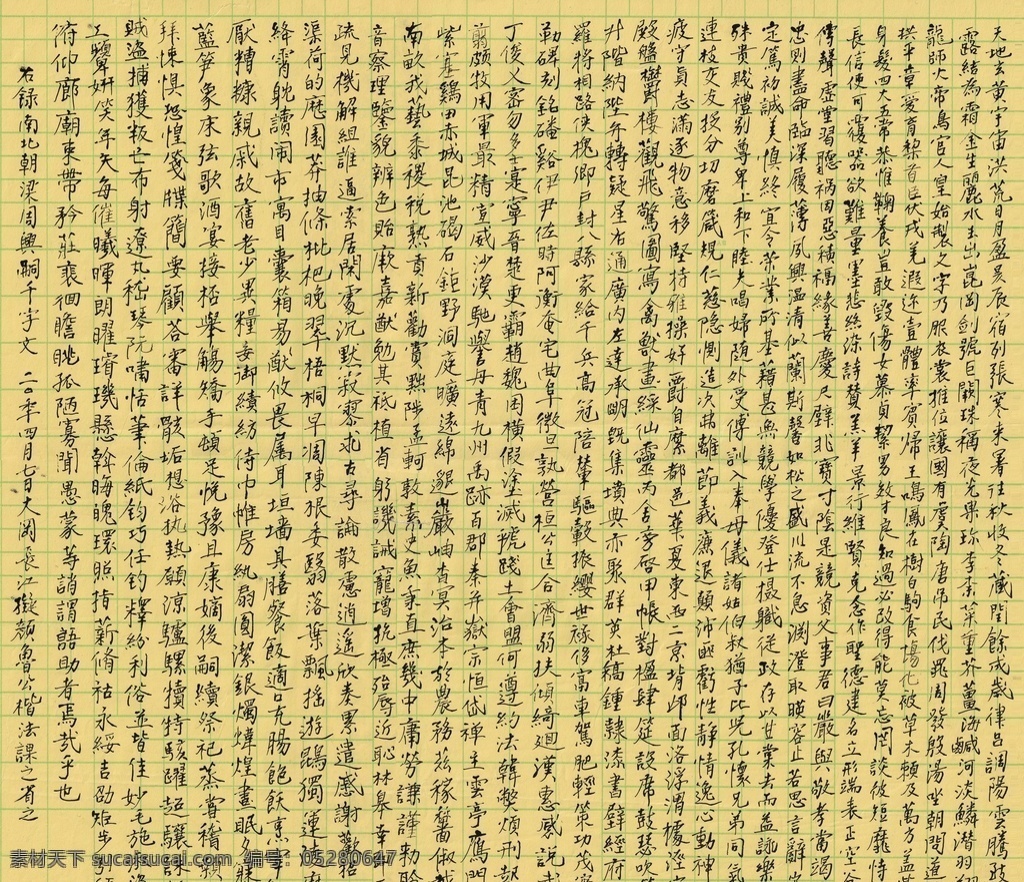 天地玄黄宇宙洪荒日月盈昃辰宿列張寒来暑往秋收冬藏閏餘成歲律呂調陽雲騰致
露結為霜金生麗水玉出崑岡劍號巨闕珠稱夜光果珍李柰菜重芥薑海鹹河淡鱗潛羽翔
龍師火帝鳥官人皇始製文字乃服衣裳推位讓國有虞陶唐吊民伐罪周發殷湯坐朝問道
拱平章愛育黎首臣伏戎羌遐迩壹體率賓歸王鳴鳳在樹白駒食場化被草木賴及萬方蓋此
身髮四大五常恭惟鞠養豈敢毀傷女慕貞絜男效才良知過必改得能莫忘罔談彼短靡恃
長信使可覆器欲難量墨悲絲染詩贊羔羊景行維賢克念作聖德建名立形端表正空谷
傳聲虛堂習聽禍因惡積福緣善慶尺璧非寶寸陰是競資父事君曰嚴與敬孝當竭
忠則盡命臨深履薄夙興溫凊似蘭斯馨如松之盛川流不息淵澄取暎容止若思言辭
定篤初誠美慎終宜令榮業所基藉甚無競學優登仕攝職從政存以甘棠去而益詠樂
殊貴賤禮別尊卑上和下睦夫唱婦随外受傅訓入奉母儀諸姑伯叔猶子比兒孔懷兄弟同氣
連枝交友投分切磨箴規仁慈隐惻造次弗離節義廉退顛沛匪虧性靜情逸心動神
疲守真志滿逐物意移堅持雅操好爵自縻都邑華夏東西二京背邙面洛浮渭據涇宮
殿盤欝樓觀飛驚圖寫禽獸畫綵仙靈丙舍旁啓甲帳對楹肆筵設席鼓瑟吹
升階納陛弁轉疑星右通廣内左達承明既集墳典亦聚群英杜稿鍾隸漆書壁經府
羅將相路俠槐卿戶封八縣家給千兵高冠陪輦驅轂振纓世祿侈富車駕肥輕策功茂
勒碑刻銘磻谿伊尹佐時阿衡奄宅曲阜微旦孰營桓公匡合濟弱扶傾綺迴漢惠感説武
丁俊乂密勿多士寔寧晉楚更霸趙魏困横假途滅虢踐土會盟何遵約法韓弊煩刑起
翦頗牧用軍最精宣威沙漠馳譽丹青九州禹跡百郡秦并嶽宗恒岱禅主雲亭雁門
紫塞鷄田赤城昆池碣石鉅野洞庭曠遠綿邈巖岫杳冥治本於農務兹稼穡俶載
南畝我藝黍稷税熟貢新勸賞黜陟孟軻敦素史魚秉直庶幾中庸勞謙謹勑聆
音察理鑒貌辨色貽厥嘉猷勉其祗植省躬譏誡寵增抗極殆辱近恥林皋幸即
疏見機解組誰逼索居閑處沉默寂寥求古尋論散慮逍遥欣奏累遣慼謝歡招
渠荷的歷園莽抽條枇杷晚翠梧桐早凋陳根委翳落葉飄摇游鵾獨運凌摩
絳霄耽讀閙市寓目囊箱易輶攸畏屬耳垣墻具膳餐飯適口充腸飽飫烹宰
厭糟糠親戚故舊老少異糧妾御績紡侍巾帷房紈扇圓潔銀燭煒煌晝眠夕寐
藍笋象床弦歌酒宴接杯舉觴矯手頓足悦豫且康嫡後嗣續祭祀蒸嘗稽顙
拜悚懼恐惶箋牒簡要顧答審詳骸垢想浴執熱願涼驢騾犢特駭躍超驤誅
賊盗捕獲叛亡布射遼丸嵇琴阮嘯恬筆倫紙鈞巧任釣釋紛利俗並皆佳妙毛施淑
工顰妍笑年矢每催曦暉朗曜璿璣懸斡晦魄環照指薪脩祜永綏吉劭矩步引領
俯仰廊廟束帶矜莊裵徊瞻眺孤陋寡聞愚蒙等誚謂語助者焉哉乎也
右録南北朝梁周興嗣千字文 二〇〇年四月七日大閑長江擬顏魯公楷法課之省之
素材天下 sucaisucai.com 编号：05280647